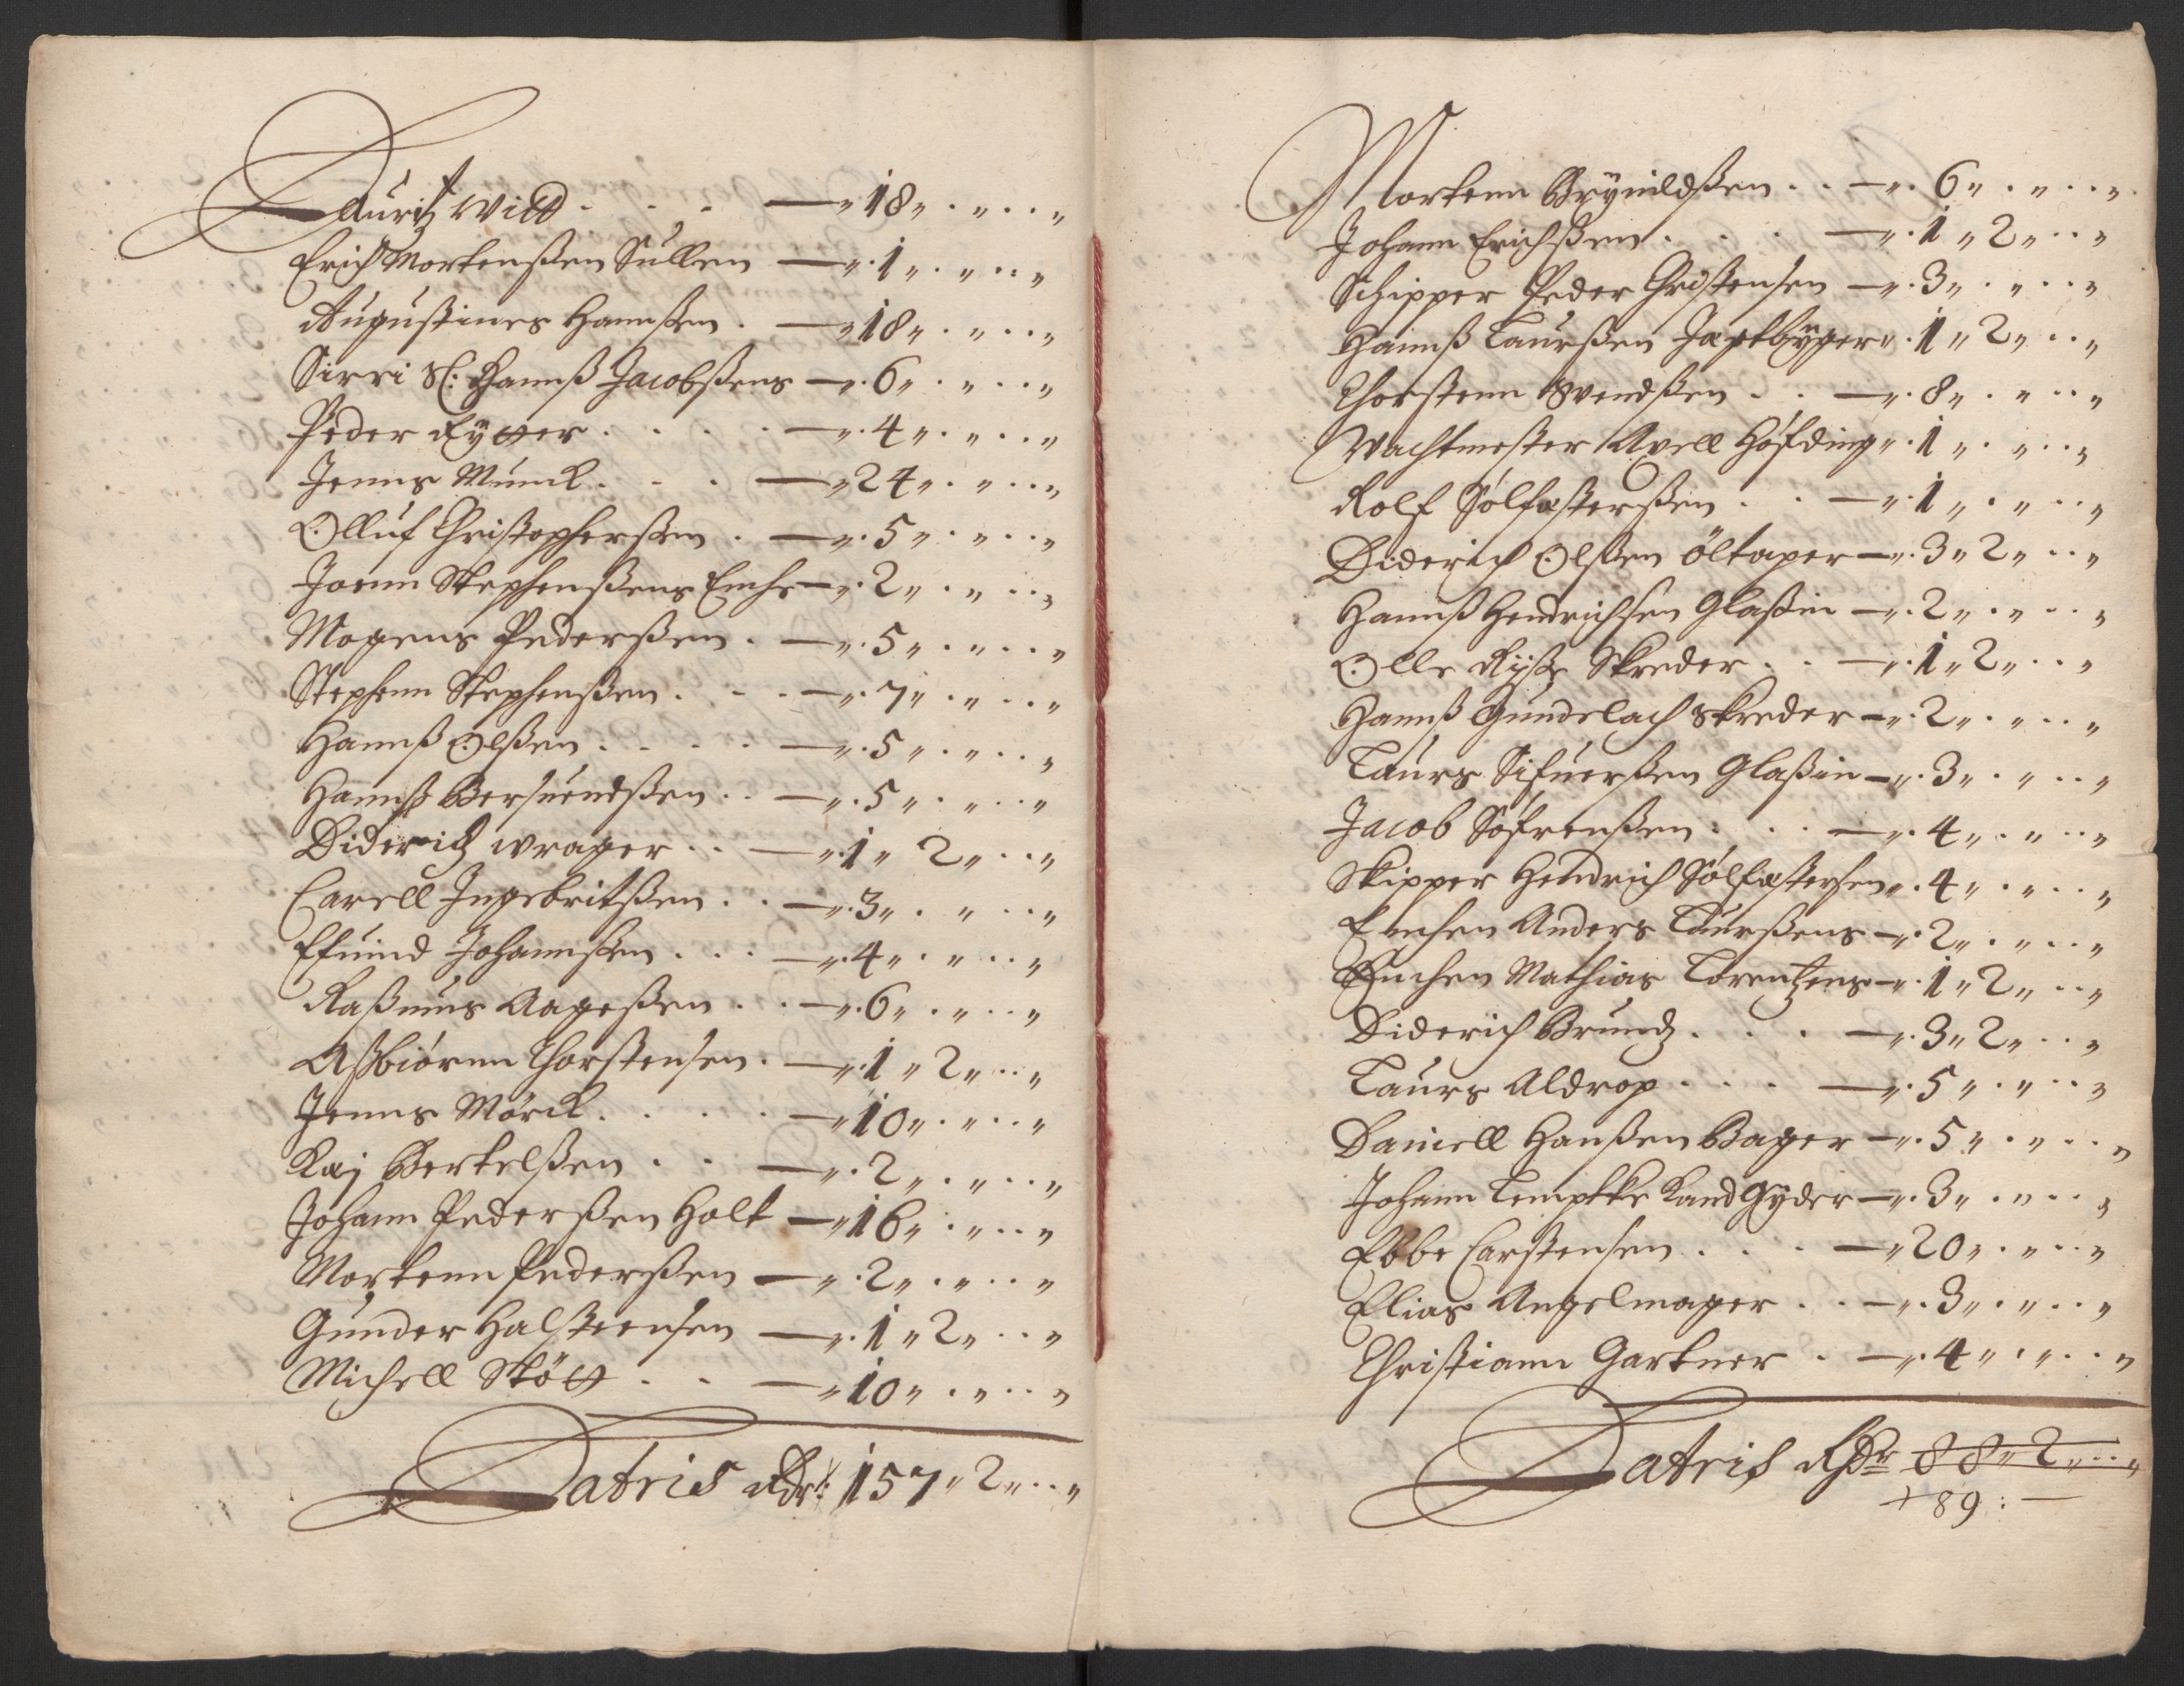 Lauritz Wild - 18 „ „
Erich Mortensßen Sullen - 1 „ „
Augustinus Hannßen - 18 „ „
Sirri Sl: Hannß Jacobßens - 6 „ „
Peder Rytter - 4 „ „
Jenns Munck - 24 „ „
Olluf Christophersßen - 5 „ „
Joenn Stephenßens Enche - 2 „ „
Mogens Pederßen - 5 „ „
Stephenn Stephenßen - 7 „ „
Hannß Olßen - 5 „ „
Hannß Bersuendßen - 5 „ „
Diderich wrager - 1 „ 2 „
Carell Ingebritßen - 3 „ „
Efuind Johannßen - 4 „ „
Raßmus Aageßen - 6 „ „
Aßbiørnn Thorstensen - 1 „ 2 „
Jenns Mørck - 10 „ „
Kaj Bertelßen - 2 „ „
Johann Pederßen Holt - 16 „ „
Mortenn Pederßen - 2 „ „
Gunder Halsteensen - 1 „ 2 „
Michell Stött - 10 „ „
Latris Rdr: 157 „ 2 „
Mortenn Brynildßen - 6 „ „
Johann Erichßen - 1 „ 2 „
Schipper Peder Christensen - 3 „ „
Hannß Laurßen Jagtbyger 1 „ 2 „
Thorstenn Svendßen - 8 „ „
Wachtmester Axell Høfding 1 „ „
Rolf Sølfasterßen - 1 „ „
Diderich Olßen Öltaper - 3 „ 2 „
Hannß Hendrichsen Glaßin - 2 „ „
Olle Ryße Skreder - 1 „ 2 „
Hannß Gundelach Skreder - 2 „ „
Laurs Sifuerßen Glaßin - 3 „ „
Jacob Søfrenßen - 4 „ „
Skipper Hendrich Sølfastersen 4 „ „
Enchen Anders Laurßens - 2 „ „
Enchen Mathias Lorentzens - 1 „ 2 „
Diderich Brundz - 3 „ 2 „
Laurs Aldrop - 5 „ „
Daniell Hanßen Bager - 5 „ „
Johann Lemptke Kandgyder - 3 „ „
Ebbe Carstensen - 20 „ „
Elias Angelmager - 3 „ „
Christiann Gartner - 4 „ „
Latris Rdr 88 „ 2 „
+ 89 : -